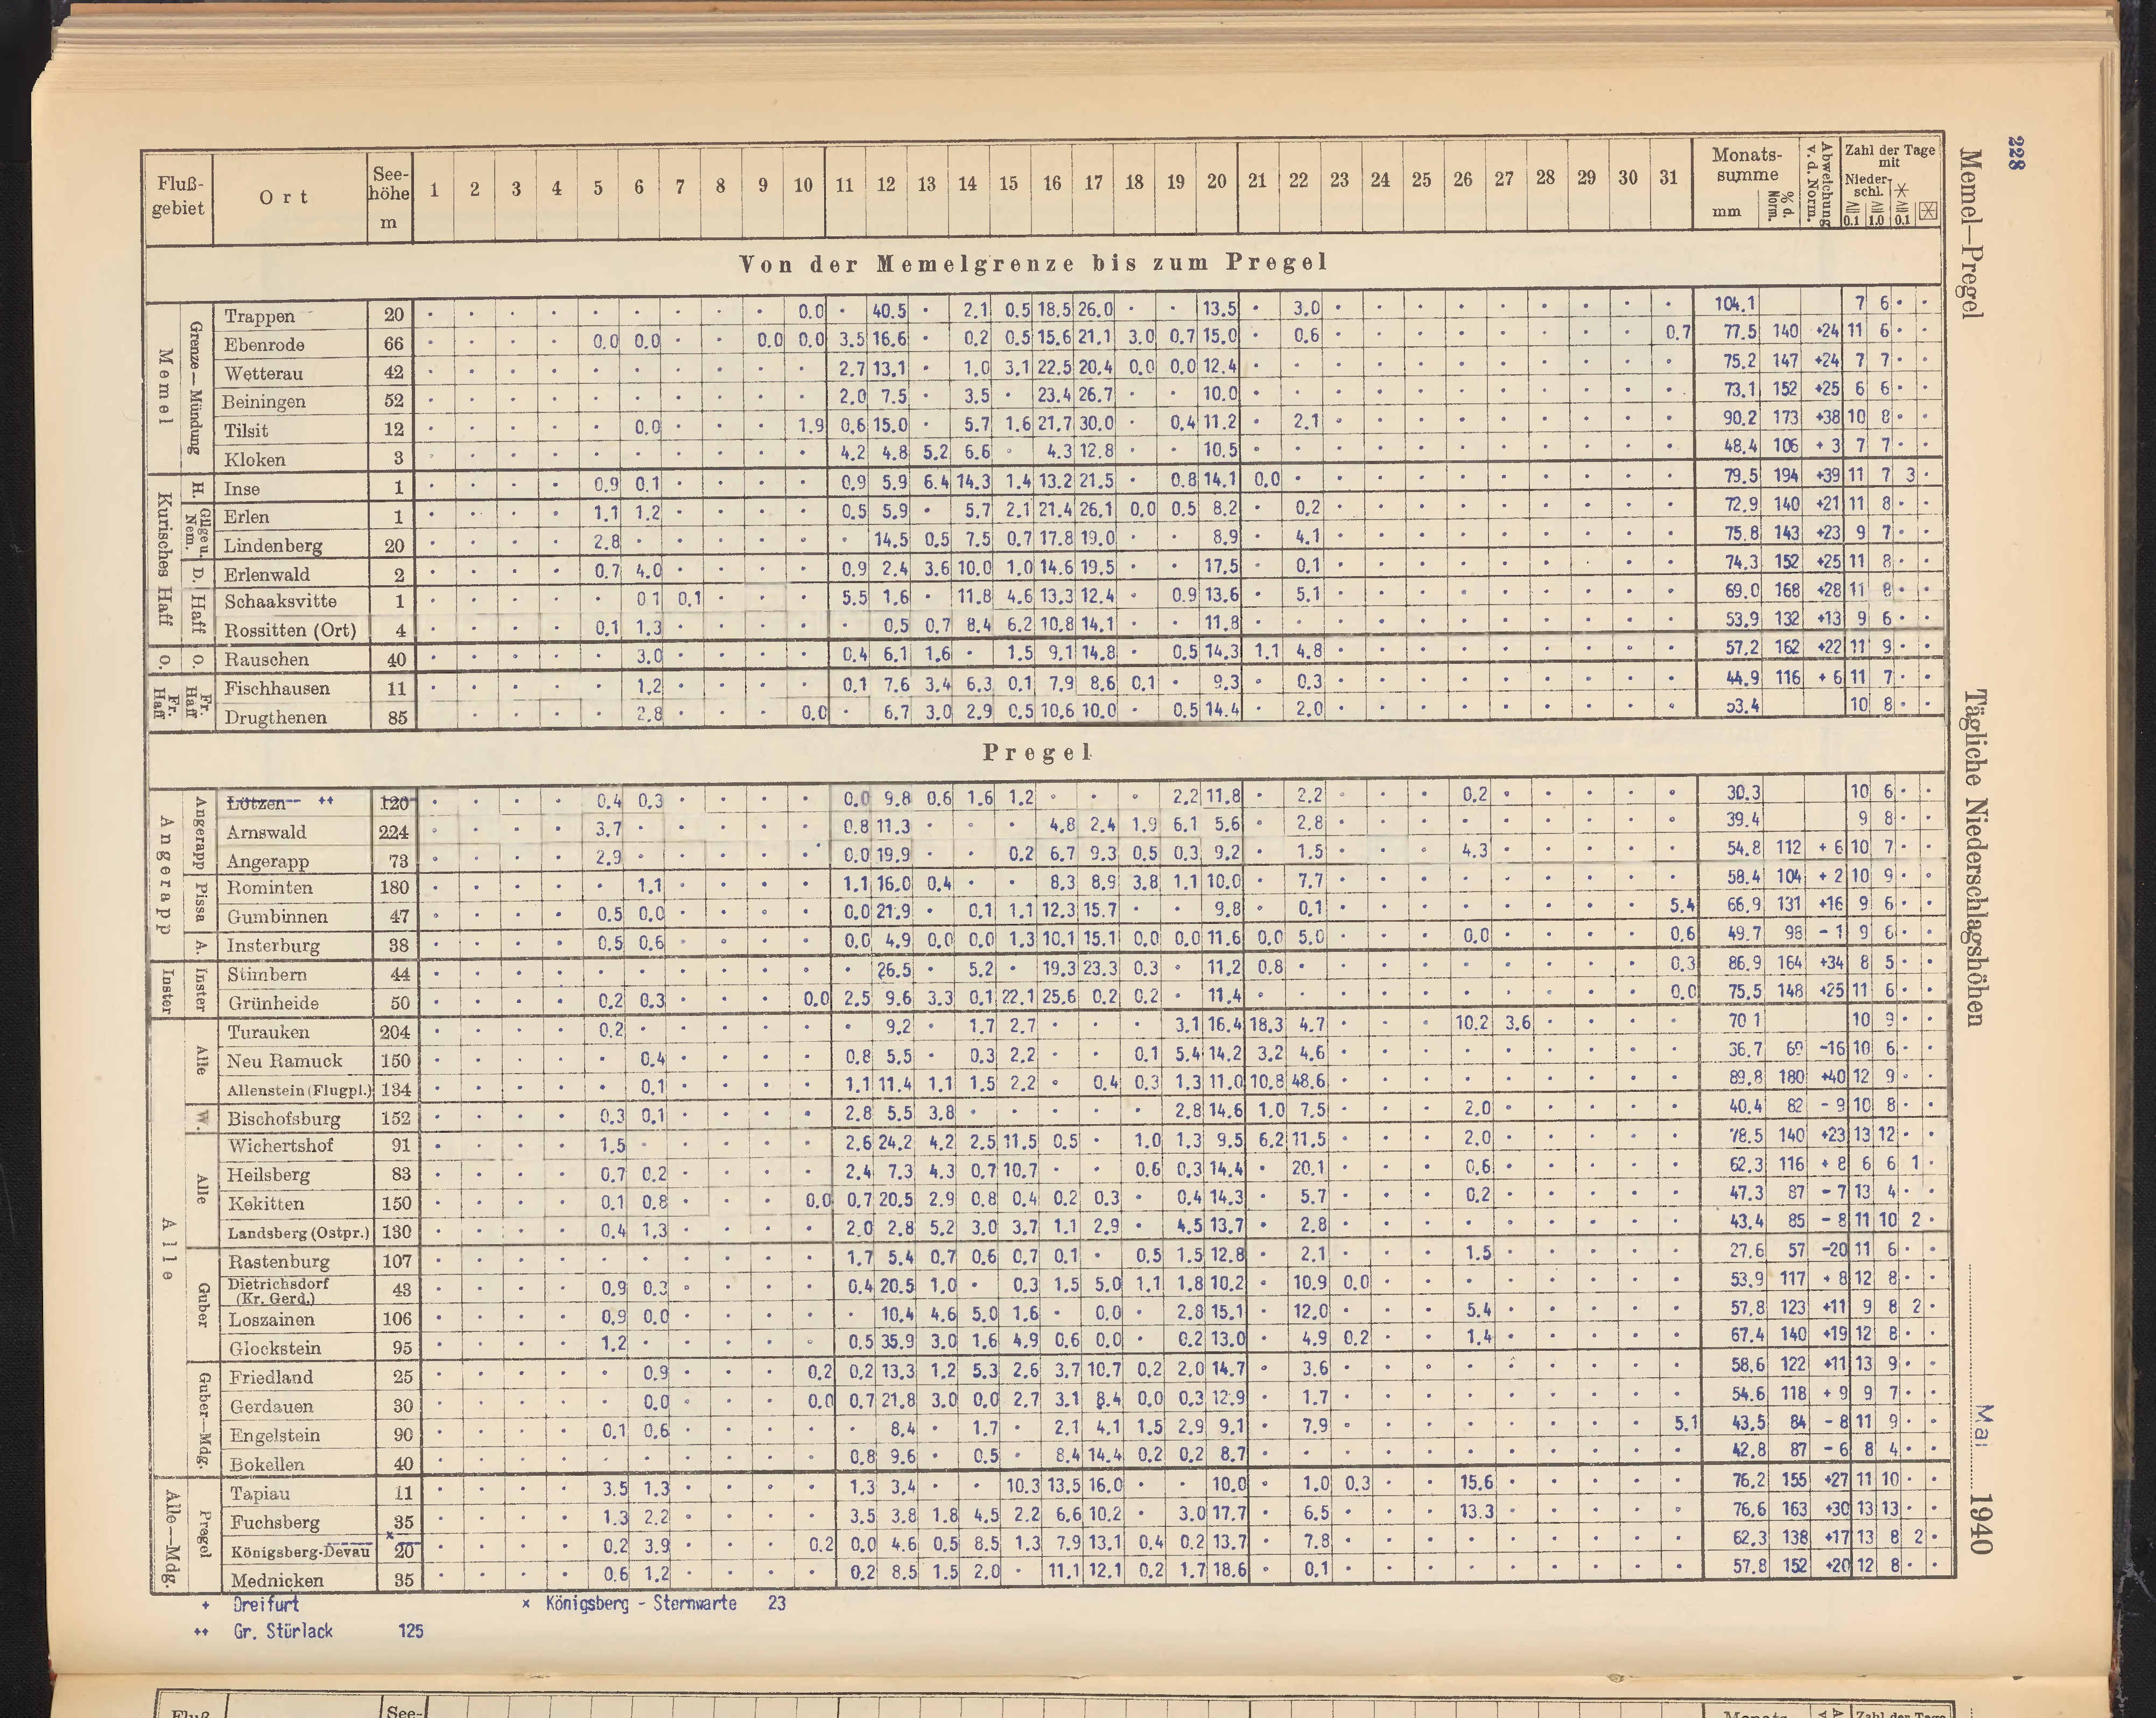 228
Memel—Pregel
Tägliche Niederschlagshöhen
Mai 1940
Fluß-gebiet Ort Seehöhe m 1 2 3 4 5 6 7 8 9 10 11 12 13 14 15 16 17 18 19 20 21 22 23 24 25 26 27 28 29 30 31 Monats-summe mm % d. Norm. Abweichung v. d. Norm. Zahl der Tage mit Nieder-schl. ≧0.1 ≧1.0 ≧0.1
Von der Memelgrenze bis zum Pregel
Memel Grenze—Mündung
Trappen 20 · · · · · · · · · 0.0 · 40.5 · 2.1 0.5 18.5 26.0 · · 13.5 · 3.0 · · · · · · · · · 104.1 7 6 · ·
Ebenrode 66 · · · · 0.0 0.0 · · 0.0 0.0 3.5 16.6 · 0.2 0.5 15.6 21.1 3.0 0.7 15.0 · 0.6 · · · · · · · · 0.7 77.5 140 +24 11 6 · ·
Wetterau 42 · · · · · · · · · · 2.7 13.1 · 1.0 3.1 22.5 20.4 0.0 0.0 12.4 · · · · · · · · · · · 75.2 147 +24 7 7 · ·
Beiningen 52 · · · · · · · · · · 2.0 7.5 · 3.5 · 23.4 26.7 · · 10.0 · · · · · · · · · · · 73.1 152 +25 6 6 · ·
Tilsit 12 · · · · · 0.0 · · · 1.9 0.6 15.0 · 5.7 1.6 21.7 30.0 · 0.4 11.2 · 2.1 · · · · · · · · · 90.2 173 +38 10 8 · ·
Kloken 3 · · · · · · · · · · 4.2 4.8 5.2 6.6 · 4.3 12.8 · · 10.5 · · · · · · · · · · · 48.4 106 + 3 7 7 · ·
Kurisches Haff H. Gilge u. Nem. D. Haff
Inse 1 · · · · 0.9 0.1 · · · · 0.9 5.9 6.4 14.3 1.4 13.2 21.5 · 0.8 14.1 0.0 · · · · · · · · · · 79.5 194 +39 11 7 3 ·
Erlen 1 · · · · 1.1 1.2 · · · · 0.5 5.9 · 5.7 2.1 21.4 26.1 0.0 0.5 8.2 · 0.2 · · · · · · · · · 72.9 140 +21 11 8 · ·
Lindenberg 20 · · · · 2.8 · · · · · · 14.5 0.5 7.5 0.7 17.8 19.0 · · 8.9 · 4.1 · · · · · · · · · 75.8 143 +23 9 7 · ·
Erlenwald 2 · · · · 0.7 4.0 · · · · 0.9 2.4 3.6 10.0 1.0 14.6 19.5 · · 17.5 · 0.1 · · · · · · · · · 74.3 152 +25 11 8 · ·
Schaaksvitte 1 · · · · · 0.1 0.1 · · · 5.5 1.6 · 11.8 4.6 13.3 12.4 · 0.9 13.6 · 5.1 · · · · · · · · · 69.0 168 +28 11 8 · ·
Rossitten (Ort) 4 · · · · 0.1 1.3 · · · · · 0.5 0.7 8.4 6.2 10.8 14.1 · · 11.8 · · · · · · · · · · · 53.9 132 +13 9 6 · ·
O. O. Rauschen 40 · · · · · 3.0 · · · · 0.4 6.1 1.6 · 1.5 9.1 14.8 · 0.5 14.3 1.1 4.8 · · · · · · · · · 57.2 162 +22 11 9 · ·
Fr. Haff Fr. Haff
Fischhausen 11 · · · · · 1.2 · · · · 0.1 7.6 3.4 6.3 0.1 7.9 8.6 0.1 · 9.3 · 0.3 · · · · · · · · · 44.9 116 + 6 11 7 · ·
Drugthenen 85 · · · · 2.8 · · · 0.0 · 6.7 3.0 2.9 0.5 10.6 10.0 · 0.5 14.4 · 2.0 · · · · · · · · · 53.4 10 8 · ·
Pregel
Angerapp Angerapp Pissa A.
Lötzen ++ 120 · · · · 0.4 0.3 · · · · 0.0 9.8 0.6 1.6 1.2 · · · 2.2 11.8 · 2.2 · · · 0.2 · · · · · 30.3 10 6 · ·
Arnswald 224 · · · · 3.7 · · · · · 0.8 11.3 · · · 4.8 2.4 1.9 6.1 5.6 · 2.8 · · · · · · · · · 39.4 9 8 · ·
Angerapp 73 · · · · 2.9 · · · · · 0.0 19.9 · · 0.2 6.7 9.3 0.5 0.3 9.2 · 1.5 · · · 4.3 · · · · · 54.8 112 + 6 10 7 · ·
Rominten 180 · · · · · 1.1 · · · · 1.1 16.0 0.4 · · 8.3 8.9 3.8 1.1 10.0 · 7.7 · · · · · · · · · 58.4 104 + 2 10 9 · ·
Gumbinnen 47 · · · · 0.5 0.0 · · · · 0.0 21.9 · 0.1 1.1 12.3 15.7 · · 9.8 · 0.1 · · · · · · · · 5.4 66.9 131 +16 9 6 · ·
Insterburg 38 · · · · 0.5 0.6 · · · · 0.0 4.9 0.0 0.0 1.3 10.1 15.1 0.0 0.0 11.6 0.0 5.0 · · · 0.0 · · · · 0.6 49.7 98 - 1 9 6 · ·
Inster Inster
Stimbern 44 · · · · · · · · · · · 26.5 · 5.2 · 19.3 23.3 0.3 · 11.2 0.8 · · · · · · · · · 0.3 86.9 164 +34 8 5 · ·
Grünheide 50 · · · · 0.2 0.3 · · · 0.0 2.5 9.6 3.3 0.1 22.1 25.6 0.2 0.2 · 11.4 · · · · · · · · · · 0.0 75.5 148 +25 11 6 · ·
Alle Alle W. Alle Guber Guber—Mdg.
Turauken 204 · · · · 0.2 · · · · · · 9.2 · 1.7 2.7 · · · 3.1 16.4 18.3 4.7 · · · 10.2 3.6 · · · · 70 1 10 9 · ·
Neu Ramuck 150 · · · · · 0.4 · · · · 0.8 5.5 · 0.3 2.2 · · 0.1 5.4 14.2 3.2 4.6 · · · · · · · · · 36.7 69 -16 10 6 · ·
Allenstein (Flugpl.) 134 · · · · · 0.1 · · · · 1.1 11.4 1.1 1.5 2.2 · 0.4 0.3 1.3 11.0 10.8 48.6 · · · · · · · · · 89.8 180 +40 12 9 · ·
Bischofsburg 152 · · · · 0.3 0.1 · · · · 2.8 5.5 3.8 · · · · · 2.8 14.6 1.0 7.5 · · · 2.0 · · · · · 40.4 82 - 9 10 8 · ·
Wichertshof 91 · · · · 1.5 · · · · · 2.6 24.2 4.2 2.5 11.5 0.5 · 1.0 1.3 9.5 6.2 11.5 · · · 2.0 · · · · · 78.5 140 +23 13 12 · ·
Heilsberg 83 · · · · 0.7 0.2 · · · · 2.4 7.3 4.3 0.7 10.7 · · 0.6 0.3 14.4 · 20.1 · · · 0.6 · · · · · 62.3 116 + 8 6 6 1 ·
Kekitten 150 · · · · 0.1 0.8 · · · 0.0 0.7 20.5 2.9 0.8 0.4 0.2 0.3 · 0.4 14.3 · 5.7 · · · 0.2 · · · · · 47.3 87 - 7 13 4 · ·
Landsberg (Ostpr.) 130 · · · · 0.4 1.3 · · · · 2.0 2.8 5.2 3.0 3.7 1.1 2.9 · 4.5 13.7 · 2.8 · · · · · · · · · 43.4 85 - 8 11 10 2 ·
Rastenburg 107 · · · · · · · · · · 1.7 5.4 0.7 0.6 0.7 0.1 · 0.5 1.5 12.8 · 2.1 · · · 1.5 · · · · · 27.6 57 -20 11 6 · ·
Dietrichsdorf (Kr. Gerd.) 43 · · · · 0.9 0.3 · · · · 0.4 20.5 1.0 · 0.3 1.5 5.0 1.1 1.8 10.2 · 10.9 0.0 · · · · · · · · 53.9 117 + 8 12 8 · ·
Loszainen 106 · · · · 0.9 0.0 · · · · · 10.4 4.6 5.0 1.6 · 0.0 · 2.8 15.1 · 12.0 · · · 5.4 · · · · · 57.8 123 +11 9 8 2 ·
Glockstein 95 · · · · 1.2 · · · · · 0.5 35.9 3.0 1.6 4.9 0.6 0.0 · 0.2 13.0 · 4.9 0.2 · · 1.4 · · · · · 67.4 140 +19 12 8 · ·
Friedland 25 · · · · · 0.9 · · · 0.2 0.2 13.3 1.2 5.3 2.6 3.7 10.7 0.2 2.0 14.7 · 3.6 · · · · · · · · · 58.6 122 +11 13 9 · ·
Gerdauen 30 · · · · · 0.0 · · · 0.0 0.7 21.8 3.0 0.0 2.7 3.1 8.4 0.0 0.3 12.9 · 1.7 · · · · · · · · · 54.6 118 + 9 9 7 · ·
Engelstein 90 · · · · 0.1 0.6 · · · · · 8.4 · 1.7 · 2.1 4.1 1.5 2.9 9.1 · 7.9 · · · · · · · · 5.1 43.5 84 - 8 11 9 · ·
Bokellen 40 · · · · · · · · · · 0.8 9.6 · 0.5 · 8.4 14.4 0.2 0.2 8.7 · · · · · · · · · · · 42.8 87 - 6 8 4 · ·
Alle—Mdg. Pregel
Tapiau 11 · · · · 3.5 1.3 · · · · 1.3 3.4 · · 10.3 13.5 16.0 · · 10.0 · 1.0 0.3 · · 15.6 · · · · · 76.2 155 +27 11 10 · ·
Fuchsberg 35 · · · · 1.3 2.2 · · · · 3.5 3.8 1.8 4.5 2.2 6.6 10.2 · 3.0 17.7 · 6.5 · · · 13.3 · · · · · 76.6 163 +30 13 13 · ·
Königsberg-Devau x 20 · · · · 0.2 3.9 · · · 0.2 0.0 4.6 0.5 8.5 1.3 7.9 13.1 0.4 0.2 13.7 · 7.8 · · · · · · · · · 62.3 138 +17 13 8 2 ·
Mednicken 35 · · · · 0.6 1.2 · · · · 0.2 8.5 1.5 2.0 · 11.1 12.1 0.2 1.7 18.6 · 0.1 · · · · · · · · · 57.8 152 +20 12 8 · ·
+ Dreifurt x Königsberg - Sternwarte 23
++ Gr. Stürlack 125
See-
Zahl der Tage